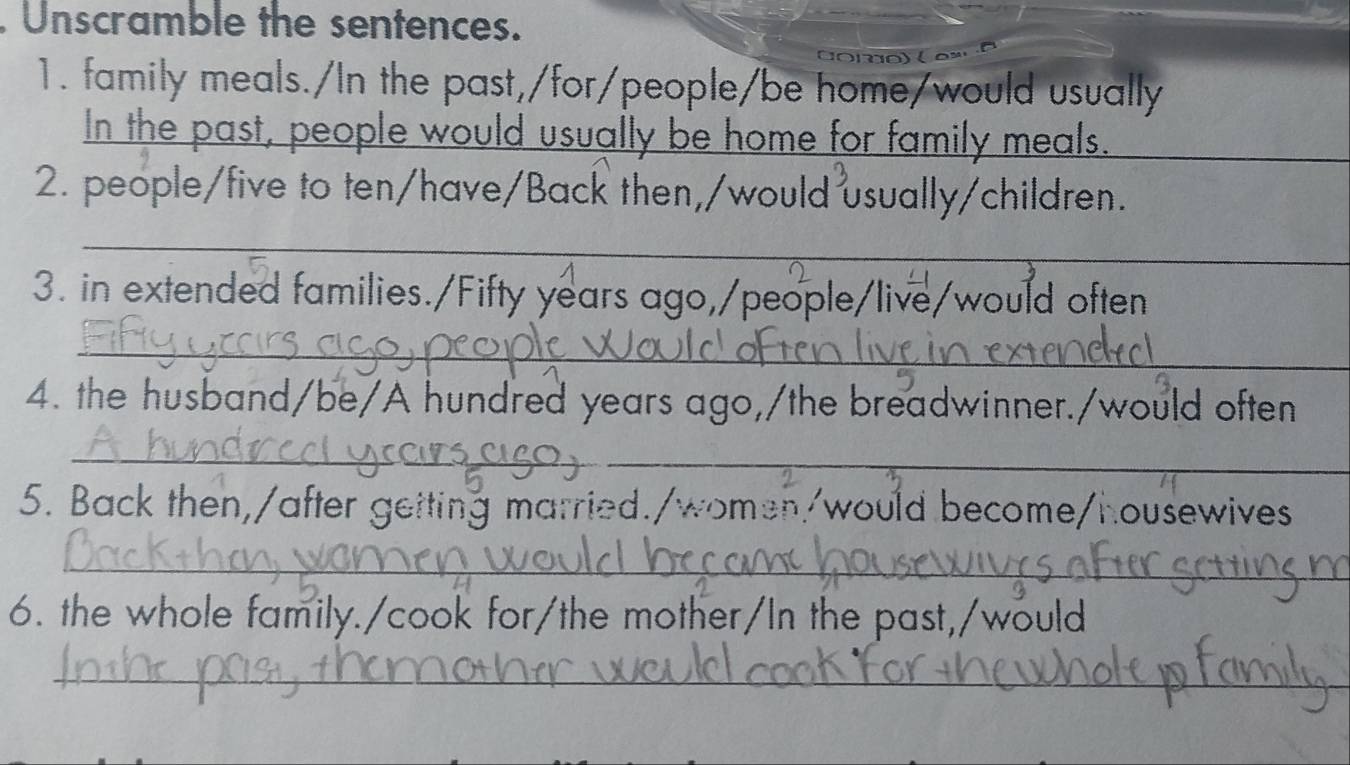 . Unscramble the sentences.
1. family meals./In the past,/for/people/be home/would usually
In the past, people would usually be home for family meals.
2 1 3
2. people/five to ten/have/Back then,/would usually/children.
5 1 2 4 3
3. in extended families./Fifty years ago,/people/live/would often
Fifty years ago, people would often live in extended
1 5 3
4. the husband/be/A hundred years ago,/the breadwinner./would often
A hundred years ago,
1 5 2 3 4
5. Back then,/after getting married./women/would become/housewives
Back then, women would became housewives after getting m
5 4 2 1 3
6. the whole family./cook for/the mother/In the past,/would
In the past, the mother would cook for the whole family